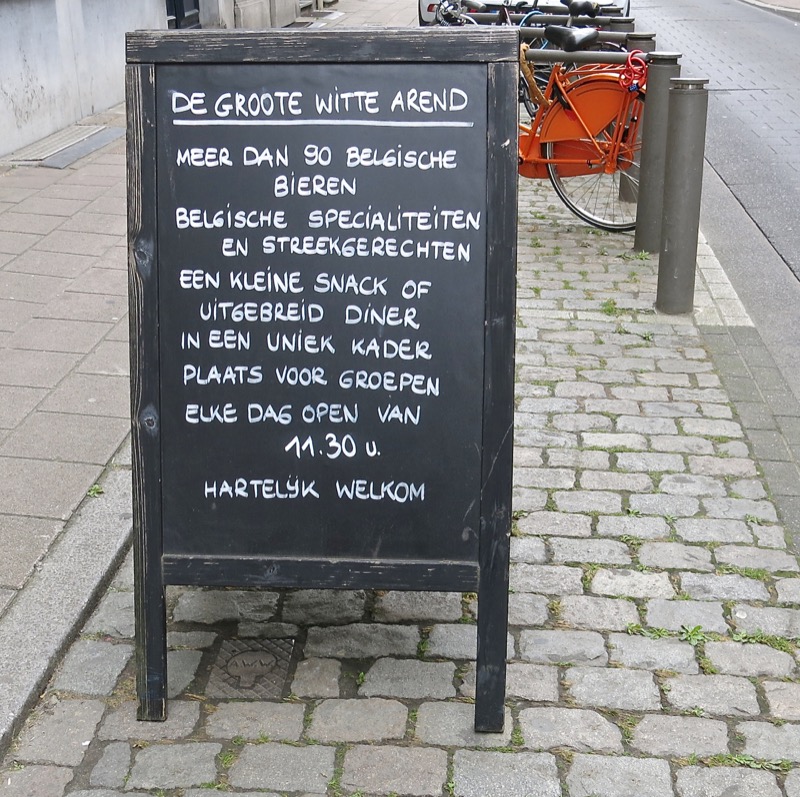 DE GROOTE WITTE AREND
MEER DAN 90 BELGISCHE
BIEREN
BELGISCHE SPECIALITEITEN
EN STREEKGERECHTEN
EEN KLEINE SNACK OF
UITGEBREID DINER
IN EEN UNIEK KADER
PLAATS VOOR GROEPEN
ELKE DAG OPEN VAN
11.30 u.
HARTELIJK WELKOM